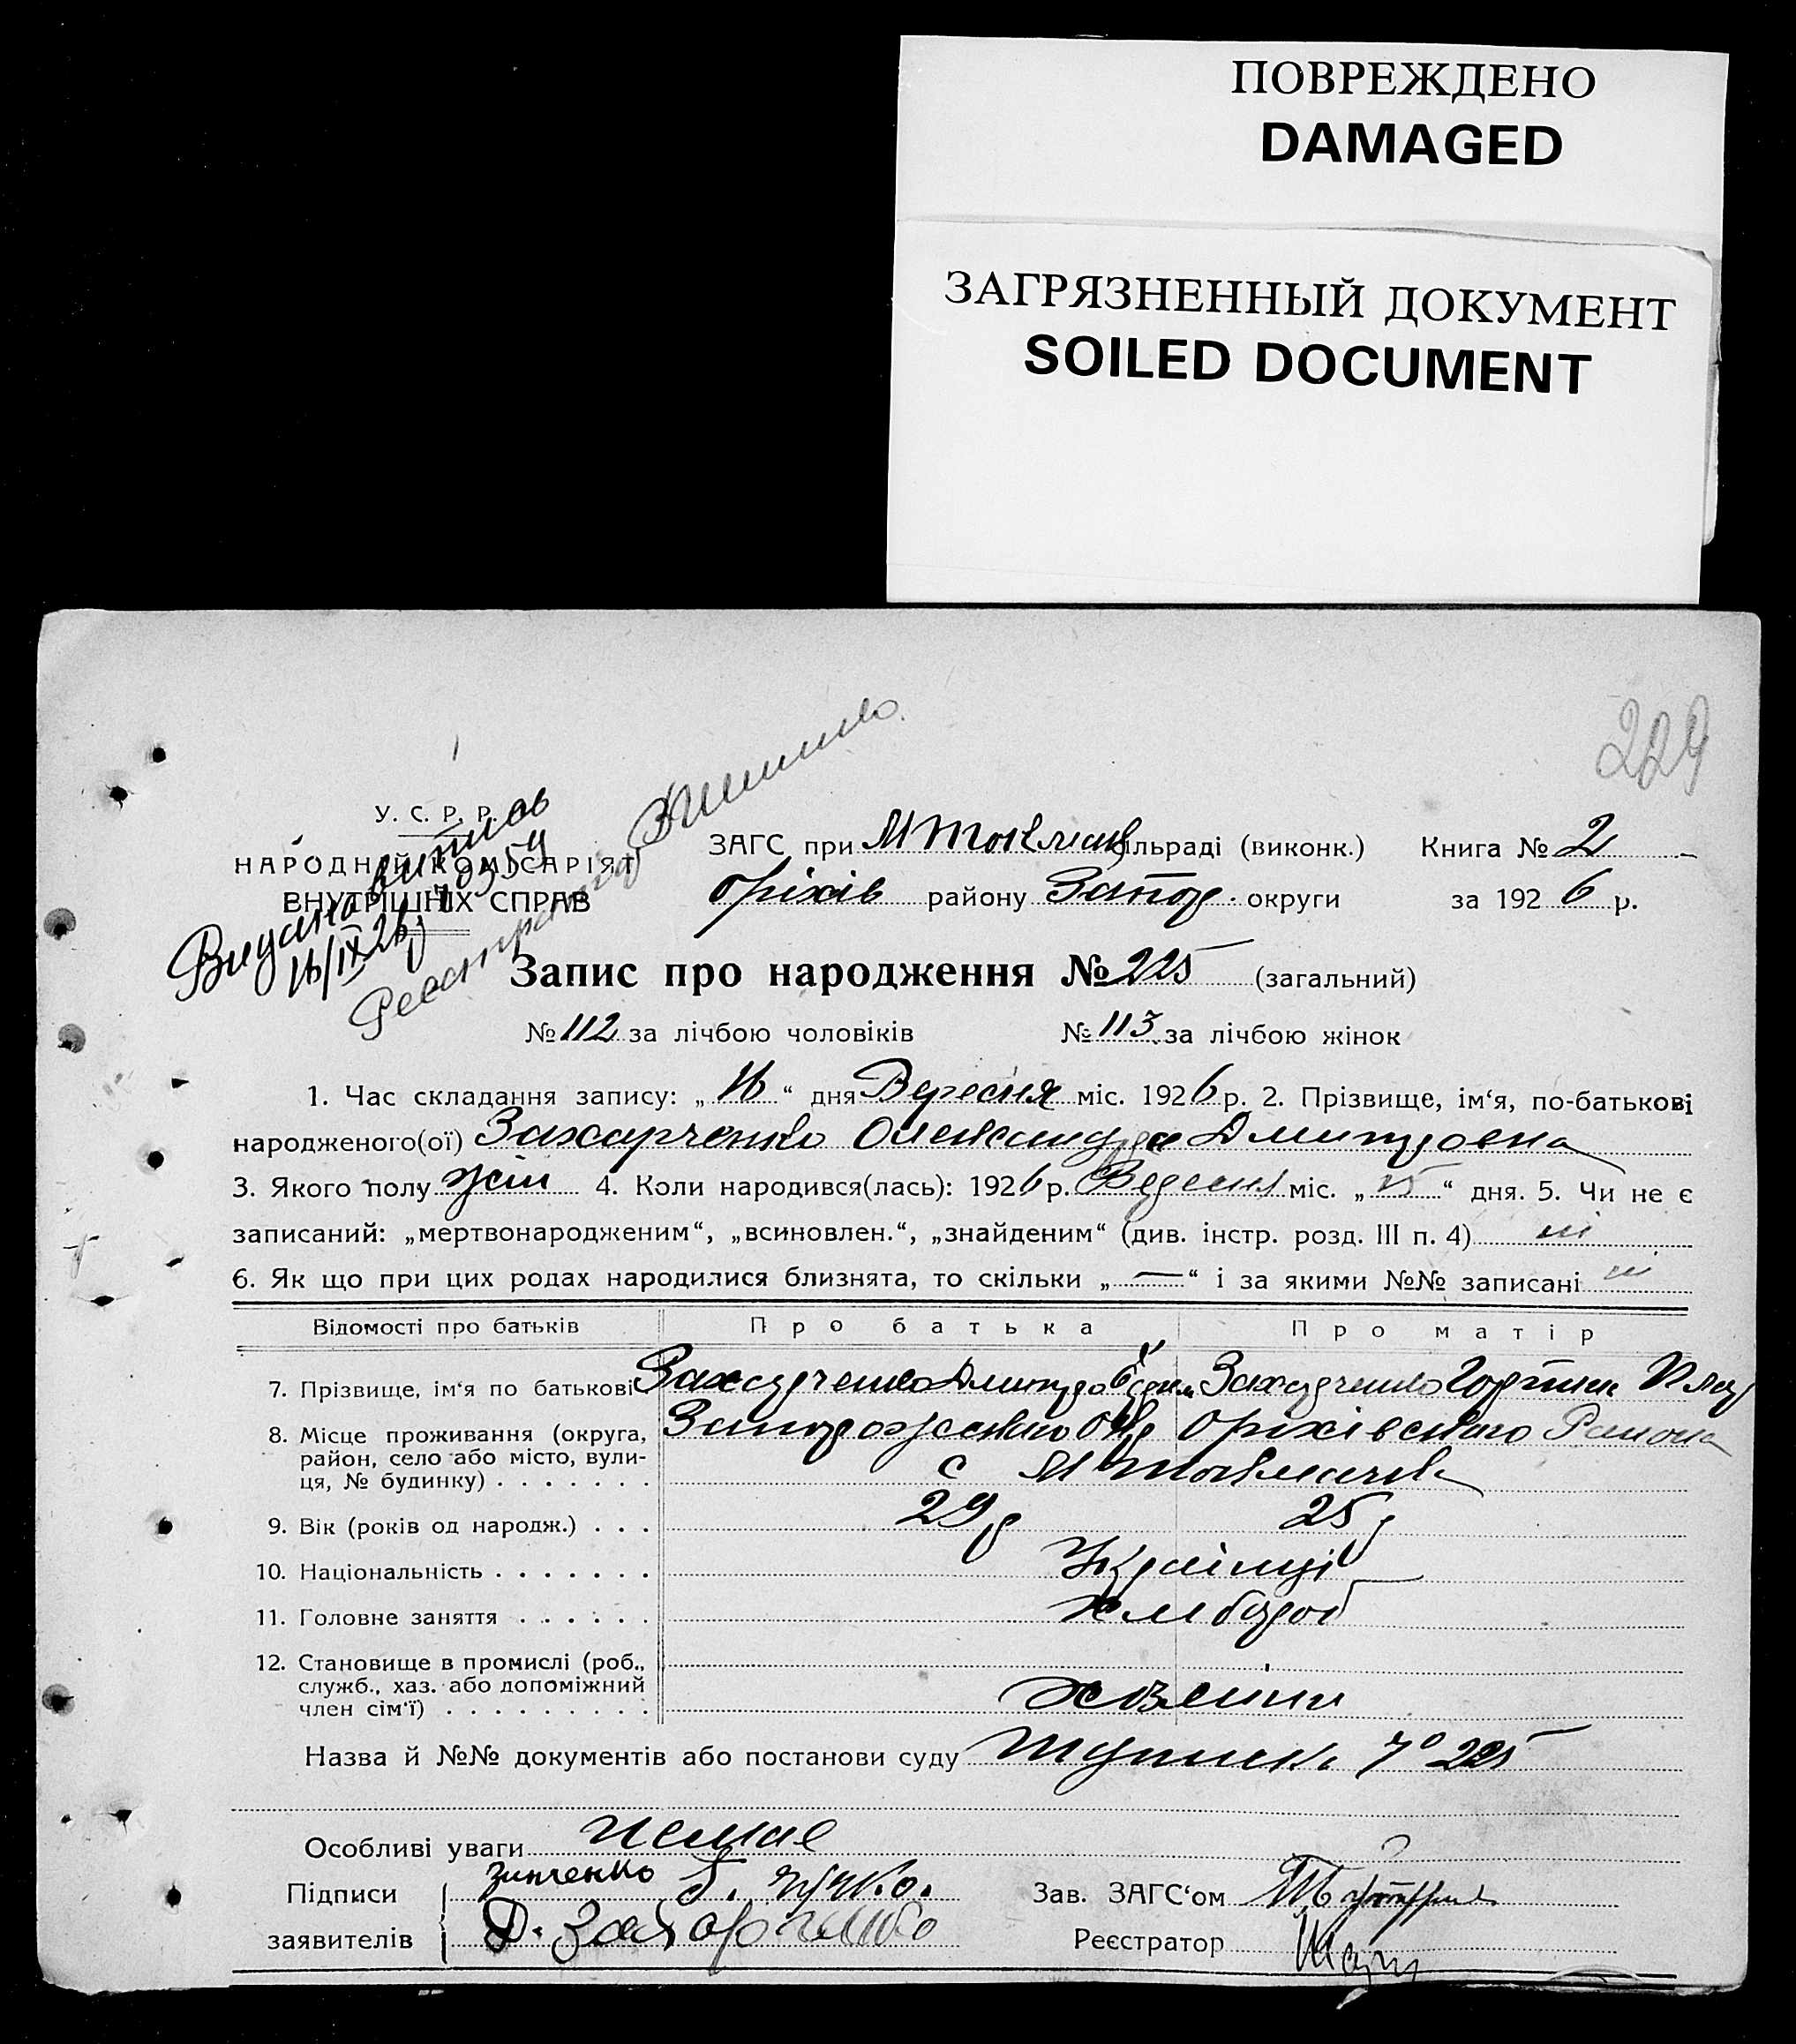 ПОВРЕЖДЕНО
DAMAGED
ЗАГРЯЗНЕННЫЙ ДОКУМЕНТ
SOILED DOCUMENT
229
У. С. Р. Р.
НАРОДНИЙ КОМІСАРІЯТ
ВНУТРІШНІХ СПРАВ
Видана випись
16/IX 26
ЗАГС при М Токмач сільраді (виконк.) Книга № 2
Оріхів району Запор. округи за 1926 р.
Запис про народження № 225 (загальний)
№ 112 за лічбою чоловіків № 113 за лічбою жінок
1. Час складання запису: „16“ дня Вересня міс. 1926 р. 2. Прізвище, ім‘я, по-батькові
народженого(ої) Захарченко Олександра Дмитровна
3. Якого полу жін 4. Коли народився(лась): 1926 р. Вересня міс. „15“ дня. 5. Чи не є
записаний: „мертвонародженим“, „всиновлен.“, „знайденим“ (див. інстр. розд. III п. 4) ні
6. Як що при цих родах народилися близнята, то скільки „—“ і за якими №№ записані ні
Відомості про батьків Про батька Про матір
7. Прізвище, ім‘я по батькові Захарченко Дмитро Захарченко
8. Місце проживання (округа, Запорожського Окр Оріхівського Района
район, село або місто, вули-
ця, № будинку) . . . . . . . с М Токмачк
9. Вік (років од народж.) . . . 29 р 25 р
10. Національність . . . . . . . Українці
11. Головне заняття . . . . . . хлібороб
12. Становище в промислі (роб.,
служб., хаз. або допоміжний
член сім‘ї) . . . . . . . . . хозяіни
Назва й №№ документів або постанови суду 225
Особливі уваги немае
Підписи Зинченко Зав. ЗАГС‘ом
заявителів Д. Захарченко Реєстратор